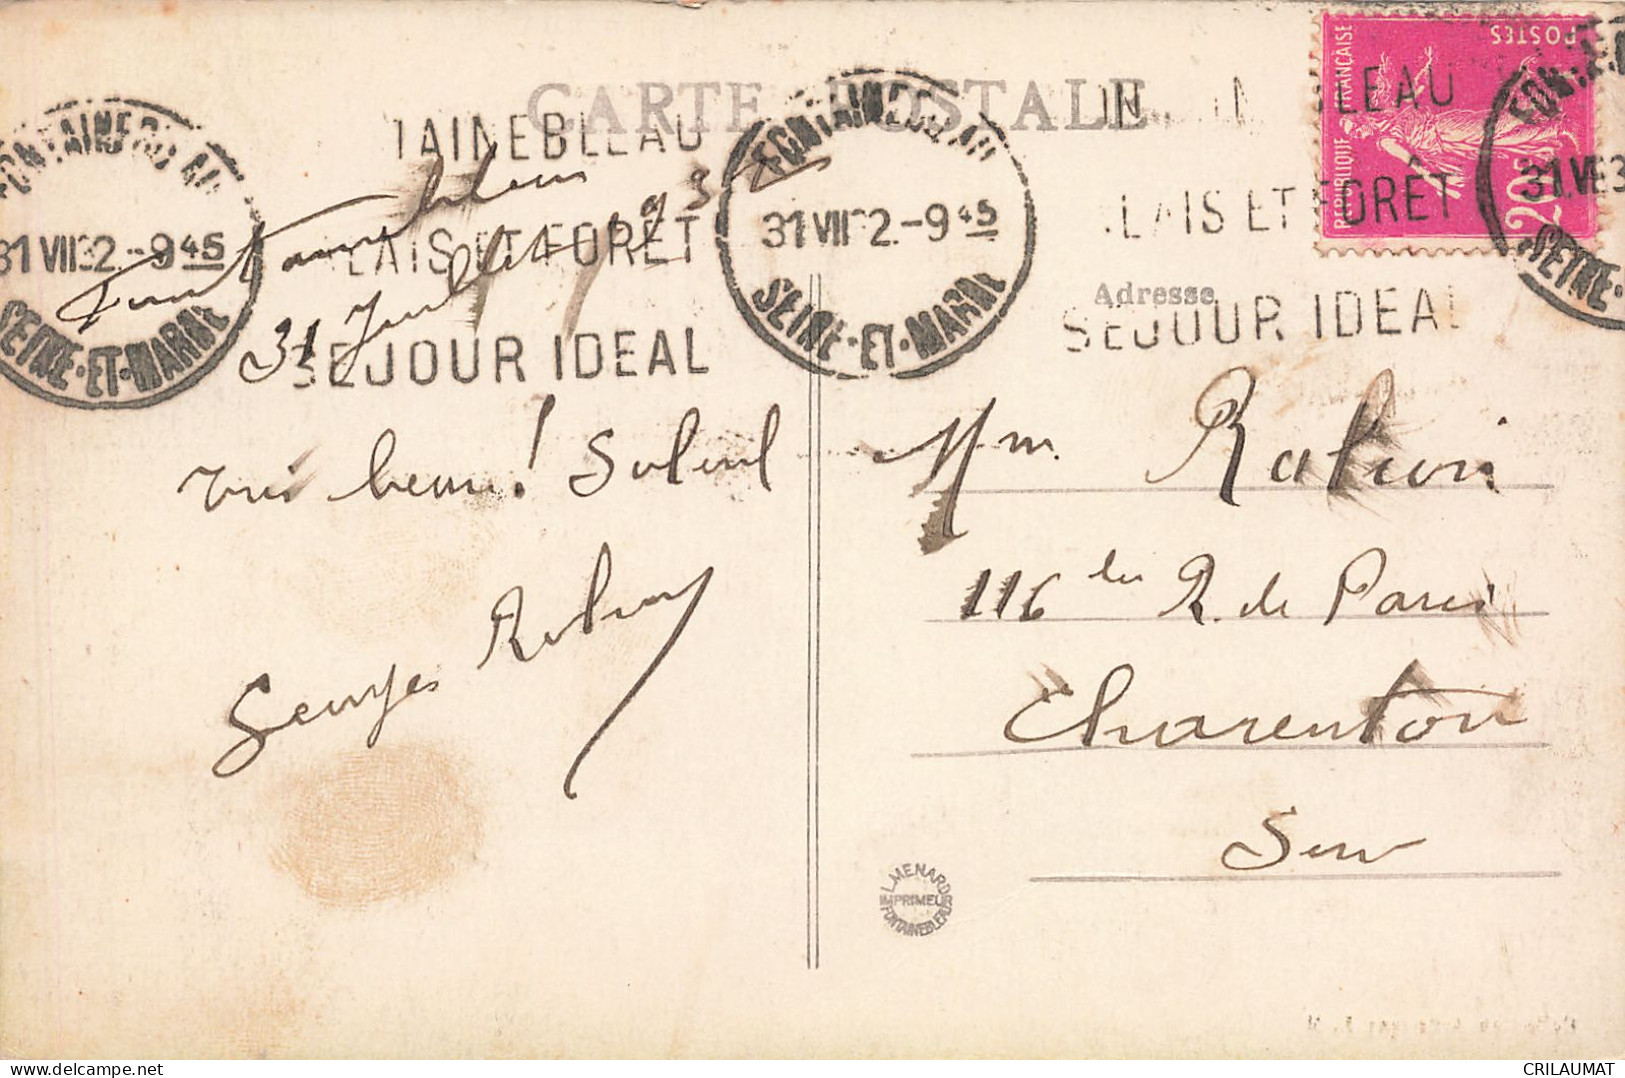 CARTE POSTALE
FONTAINEBLEAU
31 VII 32 - 9 45
SEINE-ET-MARNE
TAINEBLEAU
LAIS ET FORET
SEJOUR IDEAL
FONTAINEBLEAU
31 VII 32 - 9 45
SEINE-ET-MARNE
LEAU
LAIS ET FORET
SEJOUR IDEAL
REPUBLIQUE FRANCAISE
POSTES
20c
31 VII 3
SEINE
Fontainebleau
31 Juillet 1932
Très beau! Soleil
Georges
Adresse
Mme
116 bis R. de Paris
Charenton
Seine
L. MENARD
IMPRIMEUR
FONTAINEBLEAU
delcampe.net
CRILAUMAT